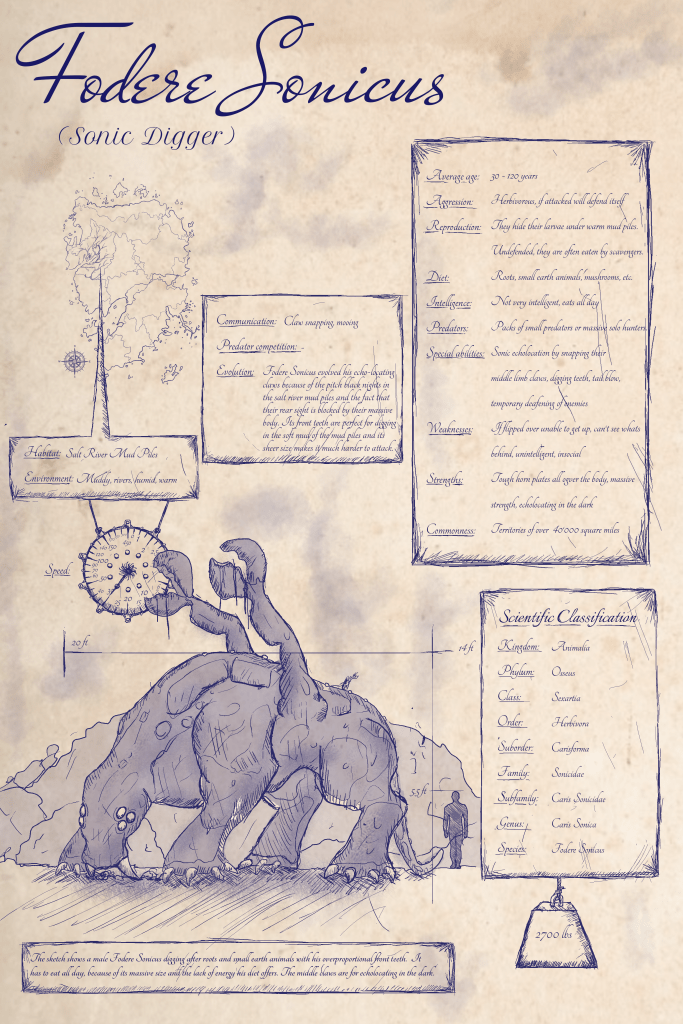 Fodere Sonicus
(Sonic Digger)
Average age: 30 - 120 years
Aggression: Herbivorous, if attacked will defend itself
Reproduction: They hide their larvae under warm mud piles.
Undefended, they are often eaten by scavengers.
Diet: Roots, small earth animals, mushrooms, etc.
Intelligence: Not very intelligent, eats all day
Predators: Packs of small predators or massive solo hunters.
Special abilities: Sonic echolocation by snapping their
middle limb claws, digging teeth, tail blow,
temporary deafening of enemies
Weaknesses: If flipped over unable to get up, can't see whats
behind, unintelligent, insocial
Strengths: Tough horn plates all ogver the body, massive
strength, echolocating in the dark
Commonness: Territories of over 40'000 square miles
Communication: Claw snapping, mooing
Predator competition: -
Evolution: Fodere Sonicus evolved his echo-locating
claws because of the pitch black nights in
the salt river mud piles and the fact that
their rear sight is blocked by their massive
body. Its front teeth are perfect for digging
in the soft mud of the mud piles and its
sheer size makes it much harder to attack.
Habitat: Salt River Mud Piles
Environment: Muddy, rivers, humid, warm
Speed:
20 ft
14 ft
5.5 ft
Scientific Classification
Kingdom: Animalia
Phylum: Osseus
Class: Sexartia
Order: Herbivora
Suborder: Carisforma
Family: Sonicidae
Subfamily: Caris Sonicidae
Genus: Caris Sonica
Species: Fodere Sonicus
2700 lbs
The sketch shows a male Fodere Sonicus digging after roots and small earth animals with his overproportional front teeth. It
has to eat all day, because of its massive size and the lack of energy his diet offers. The middle blaws are for echolocating in the dark.